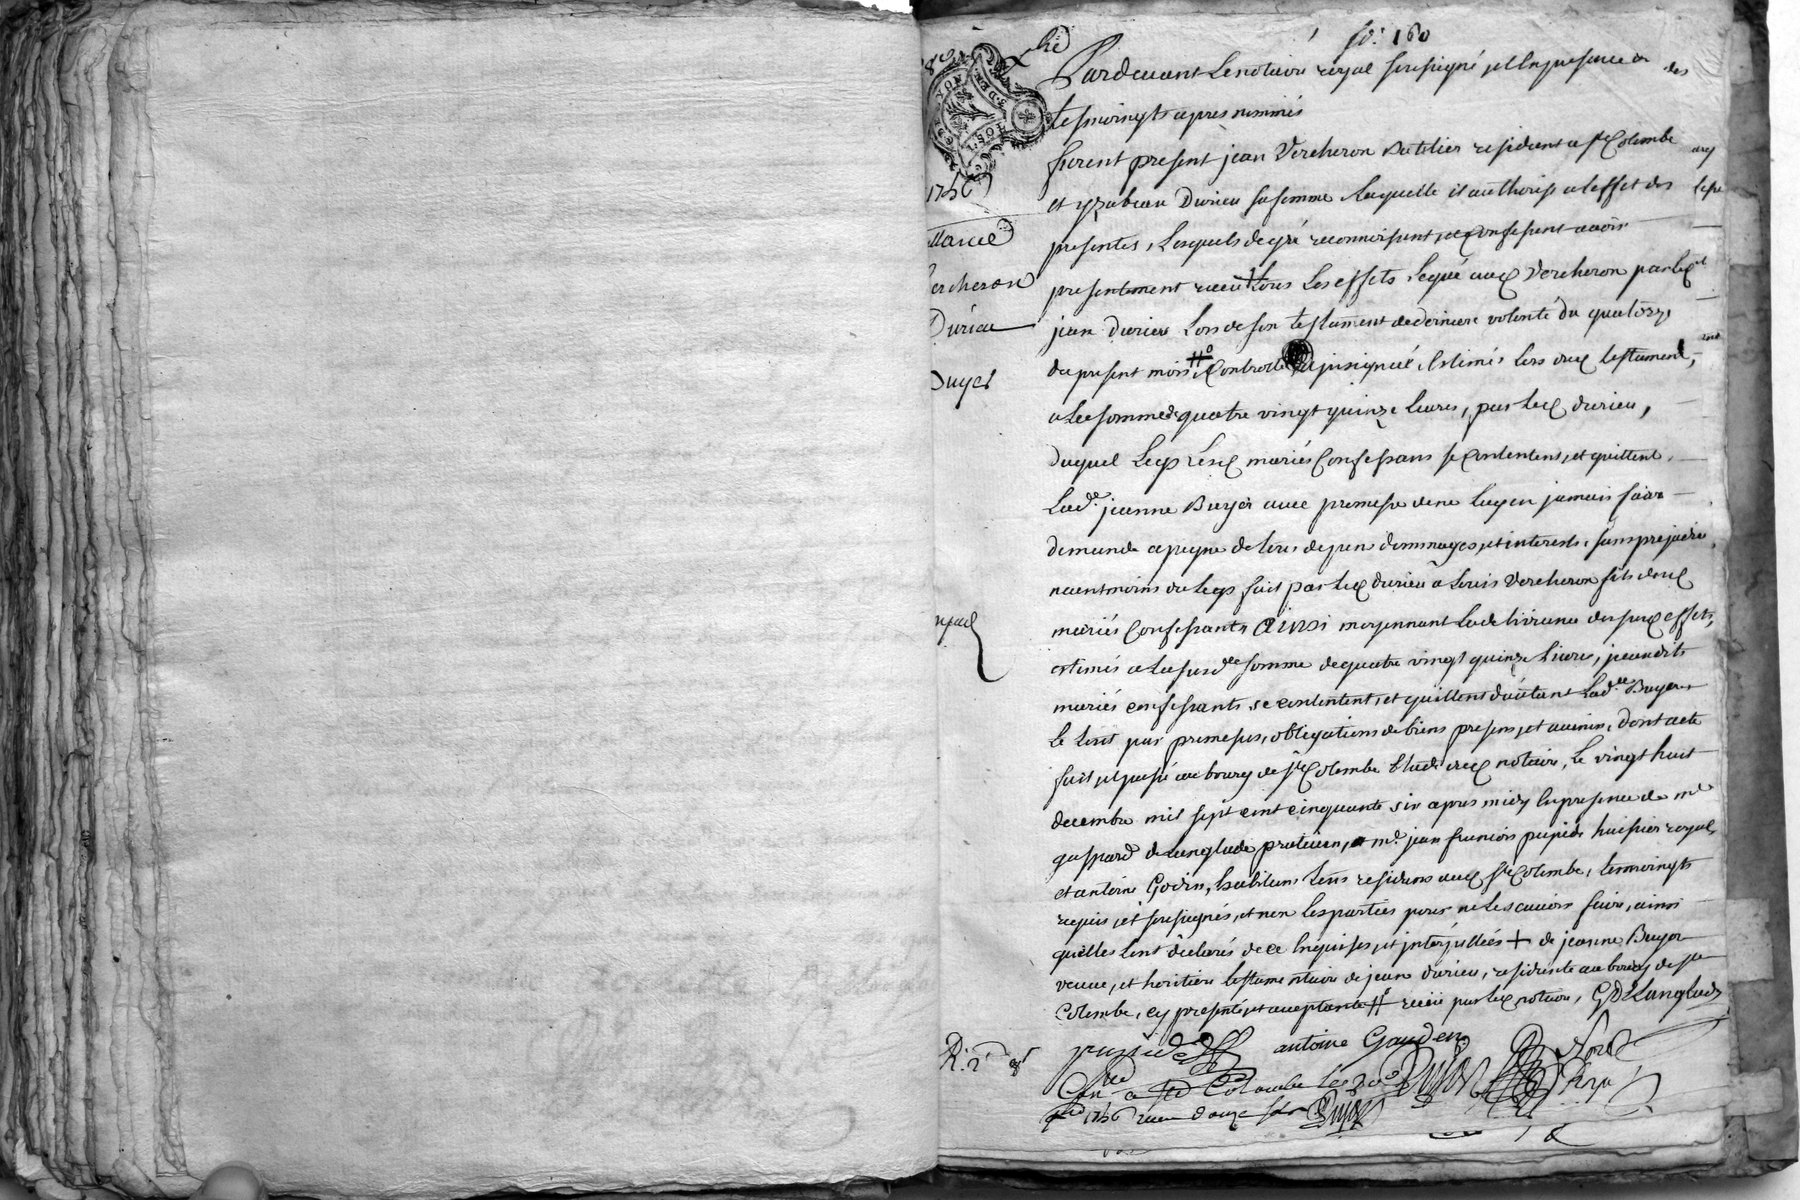 fo. 160
Pardevant Le notaire royal soussigné et En presence des
tesmoingts apres nommés
furent present jean Vercheron Battelier resident a ste Colombe
et yzabeau Durieu sa femme Laquelle il authorise a leffet des
presentes, Lesquels de gré reconnoissent, et Confessent avoir
presentement receu tous Les effets Legué aud Vercheron par led
jean Durieu Lors de son testament de derniere volonté du quatorze
du present mois Controllé insigné Estimés Lors dud testament,
a La somme de quatre vingt quinze Livres, par Led durieu,
duquel Legs Lesd mariés Confessans se Contentent, et quittent
Lade. jeanne Buyer avec promesse de ne Luy en jamais faire
demande a peyne de tous depens dommages, et interests, sans prejudice
neantmoins du Legs fait par Led durieu a Louis Vercheron fils desd
mariés Confessants Ainsi moyennant La delivrance desusd effets,
estimés a La susde somme de quatre vingt quinze Livres, Lesdits
mariés confessants se contentent, et quittent d'autant Lade. Buyer
Le tout par promesses, obligations de biens presens, et avenir, dont acte
fait et passé au bourg de ste Colombe Etude dud notaire, Le vingt huit
decembre mil sept cent cinquante six apres midy En presence de me
gaspard de Langlade praticien, et me. jean francois pupide huissier royal,
et antoine Godin, habitans tous residens aud ste Colombe, temoingts
requis, et soussignés, et non Les parties pour ne Le scavoir faire, ainsi
quelles l'ont déclarés de ce Enquises, et interpellées + de jeanne Buyer
veuve, et heritiere testamentaire de jean durieu, residente au bourg de ste
Colombe, cy presente, et acceptante # receu par Led notaire, GD Langlade
antoine Gauden
Cn a ste Colombe Le
1756 receu douze sols
1756
Vercheron
Durieu
Buyer